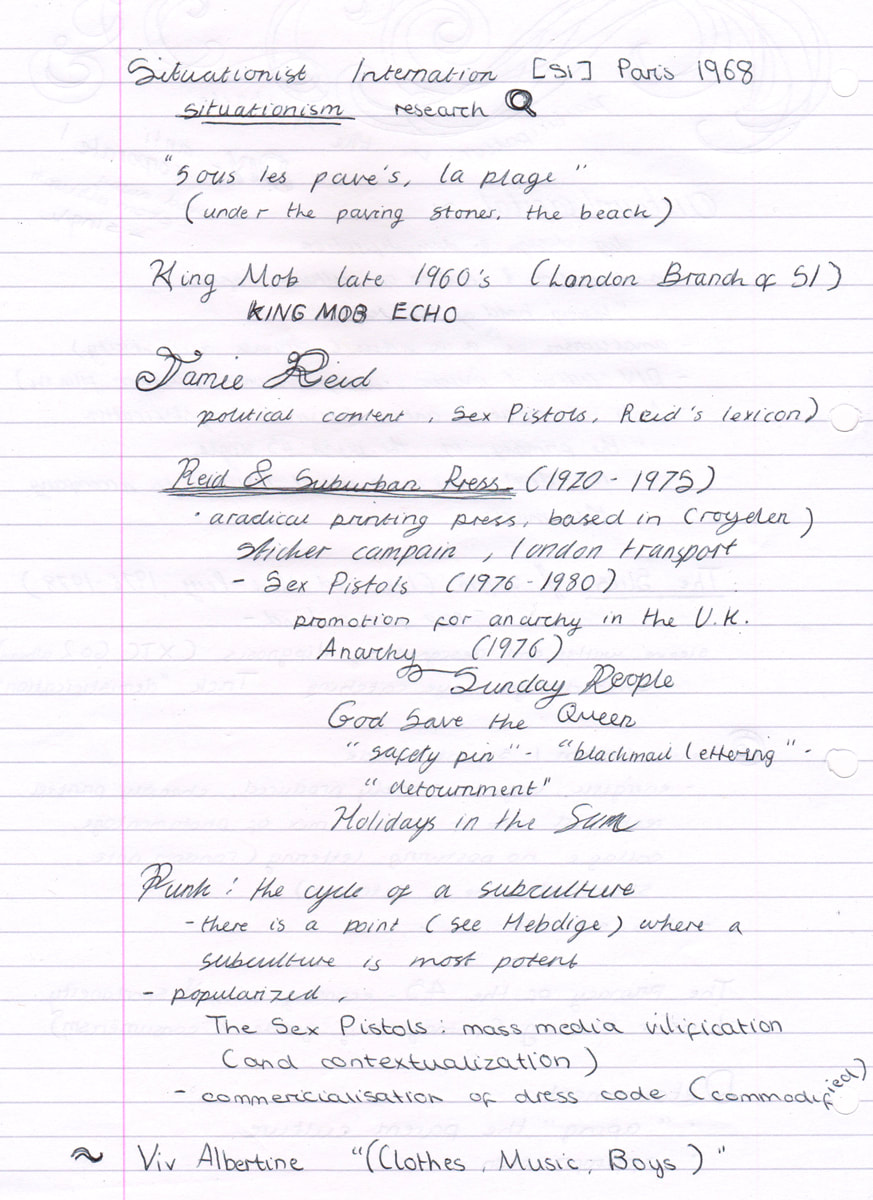 Situationist Internation [SI] Paris 1968
situationism research
"Sous les pavé's, la plage"
(under the paving stones, the beach)
King Mob late 1960's (London Branch of SI)
KING MOB ECHO
Jamie Reid
political content, Sex Pistols, Reid's lexicon)
Reid & Suburban Press (1970-1975)
· aradical printing press, based in Croyden)
sticker campain, london transport
- Sex Pistols (1976-1980)
promotion for anarchy in the U.K.
Anarchy (1976)
Sunday People
God Save the Queen
"safety pin" - "blackmail lettering" -
"detournment"
Holidays in the Sun
Punk: the cycle of a subculture
- there is a point (see Hebdige) where a
subculture is most potent
- popularized,
The Sex Pistols: mass media vilification
(and contextualization)
- commercialisation of dress code (commodified)
~ Viv Albertine "(Clothes, Music, Boys)"